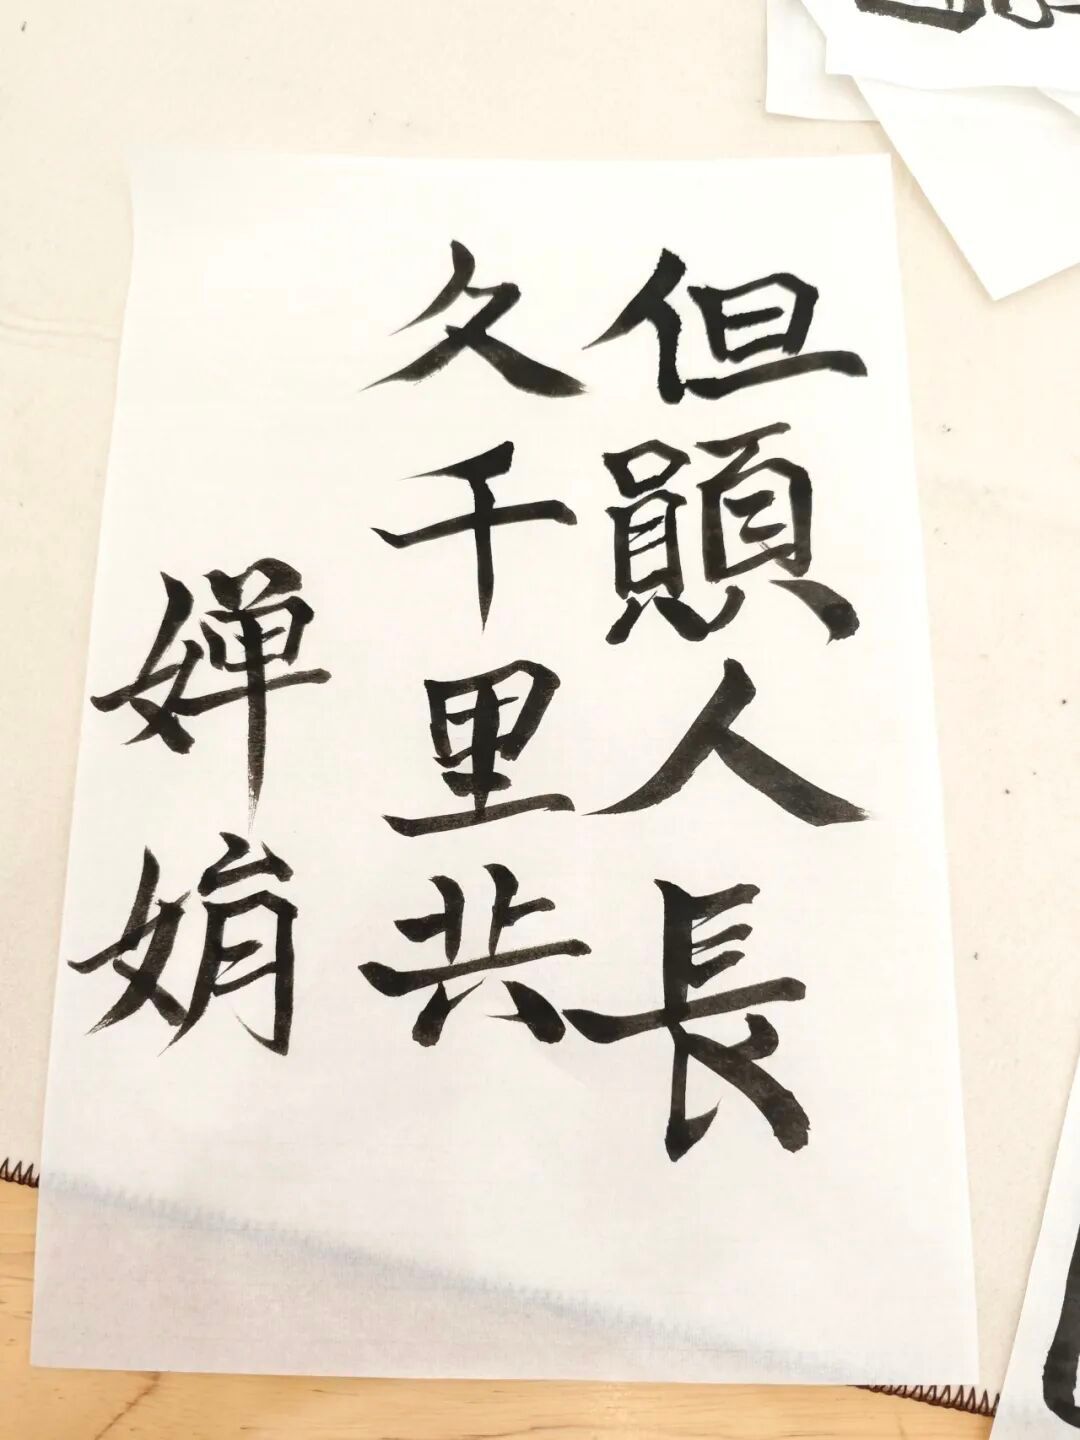 但願人長
久千里共
婵娟